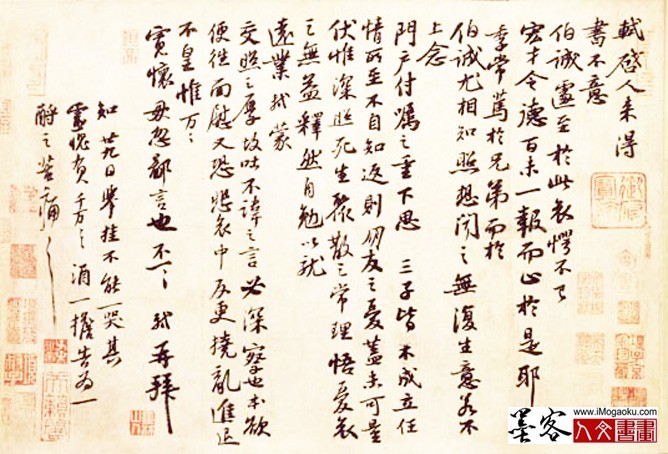 軾啓人來得
書不意
伯誠遽至於此哀愕不已
宏才令德百未一報而止於是耶
季常篤於兄弟而於
伯誠尤相知照想聞之無復生意若不
上念
門戶付囑之重下思三子皆未成立任
情所至不自知返則朋友之憂蓋未可量
伏惟深照死生聚散之常理悟憂哀
之無益釋然自勉以就
遠業軾蒙
交照之厚故吐不諱之言必深察也本欲
便往面慰又恐悲哀中反更撓亂進退
不皇惟萬萬
寬懷毋忽鄙言也不一一軾再拜
知廿九日舉挂不能一哭其
靈愧負千萬千萬酒一擔告爲一
酹之苦痛苦痛
www.iMogaoku.com
墨客
人文書畫